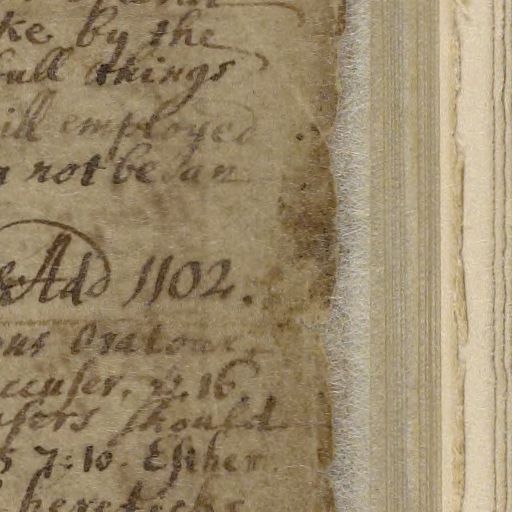 ke by the
full things
ill employed
not be San
Add 1102.
ous Oratour
ccuser, v. 16
users should
7:10. Esther
hereticks